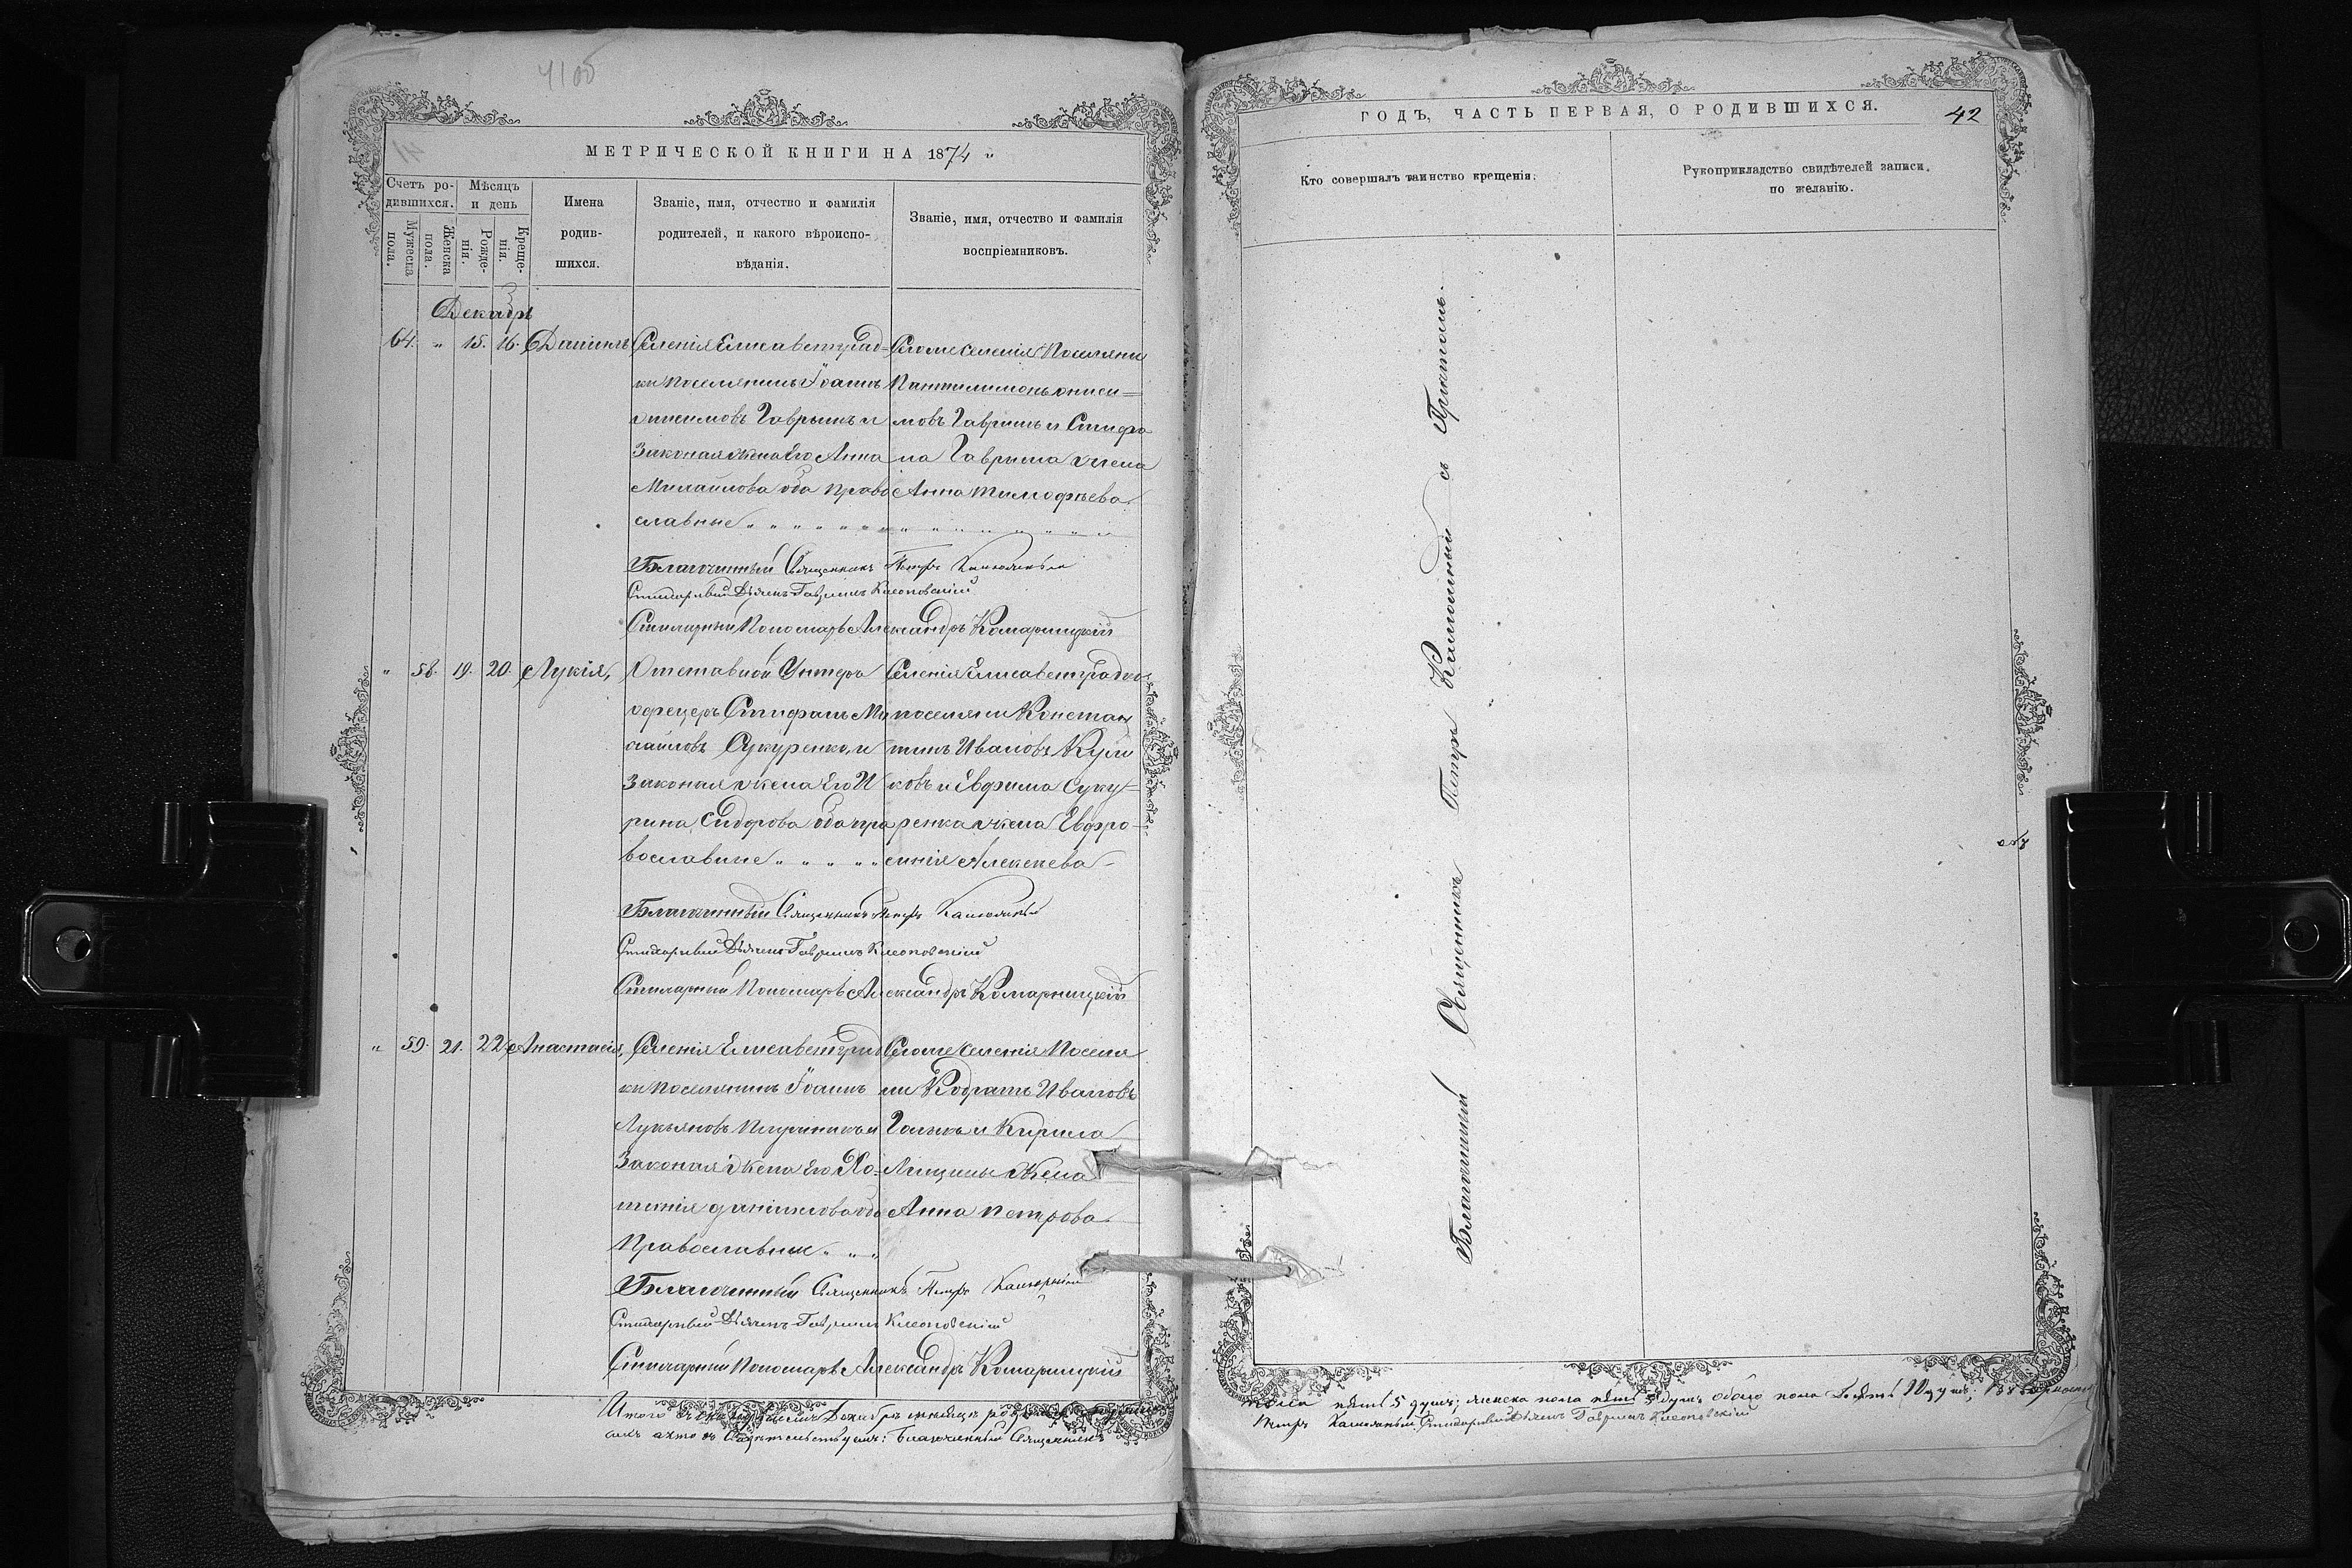 41об
МЕТРИЧЕСКОЙ КНИГИ НА 1874 "
Счетъ ро-
дившихся.
Мѣсяцъ
и день
Мужеска
пола.
Женска
пола.
Рожде-
нія.
Креще-
нія.
Имена
родив-
шихся.
Званіе, имя, отчество и фамилія
родителей, и какого вѣроиспо-
вѣданія.
Званіе, имя, отчество и фамилія
воспріемниковъ.
Декабрь
64. " 15. 16. Даніилъ
Селенія Елисаветград=
ки поселянинъ Іоаннъ
Онисимовъ Гаврышъ и
Законая жена Его Анна
Михайлова оба право
славные
Тогоже селенія Поселяни
Пантилимонъ Ониси=
мовъ Гавришъ и Стифа
на Гавриша жена
Анна Тимофѣева
Благочинный Священникъ Петръ
Стихарный Дьячекъ Гавріилъ Клеоповскій
Стихарный Пономарь Александръ Комарницкій
" 58. 19. 20. Лукія,
Отставной Унтеръ
офецеръ Стифанъ Ми
хайловъ Сукуренко, и
Законая жена Его И
рина Сидорова оба пра
вославные
Селенія Елисаветградки
поселяни Констан
тинъ Ивановъ Кули
ковъ и Евфима Суку=
ренка жена Евфро=
синія Алексѣева
Благочинный Священникъ Петръ
Стихарный Дьячекъ Гавріилъ Клеоповскій
Стихарный Пономарь Александръ Комарницкій
" 59. 21. 22. Анастасія,
Селенія Елисаветград
ки поселянинъ Іоаннъ
Лукьяновъ и
Законая жена Его Хо=
тинія Даніилова оба
Православные
Тогоже селенія Поселя
ни Кодратъ Ивановъ
и Кирила
жена
Анна Петрова
Благочинный Священникъ Петръ
Стихарный Дьячекъ Гавріилъ Клеоповскій
Стихарный Пономарь Александръ Комарницкій
Итого Декабрѣ мѣсяцѣ
Благочинный Священникъ
ГОДЪ, ЧАСТЬ ПЕРВАЯ, О РОДИВШИХСЯ.
42
Кто совершалъ таинство крещенія.
Рукоприкладство свидѣтелей записи,
по желанію.
Благочинный Священникъ Петръ съ Причтомъ.
пола пять 5 душъ; женска пола пять 5 душъ обоего пола 10 душъ;
Петръ Стихарный Дьячекъ Гавріилъ Клеоповскій